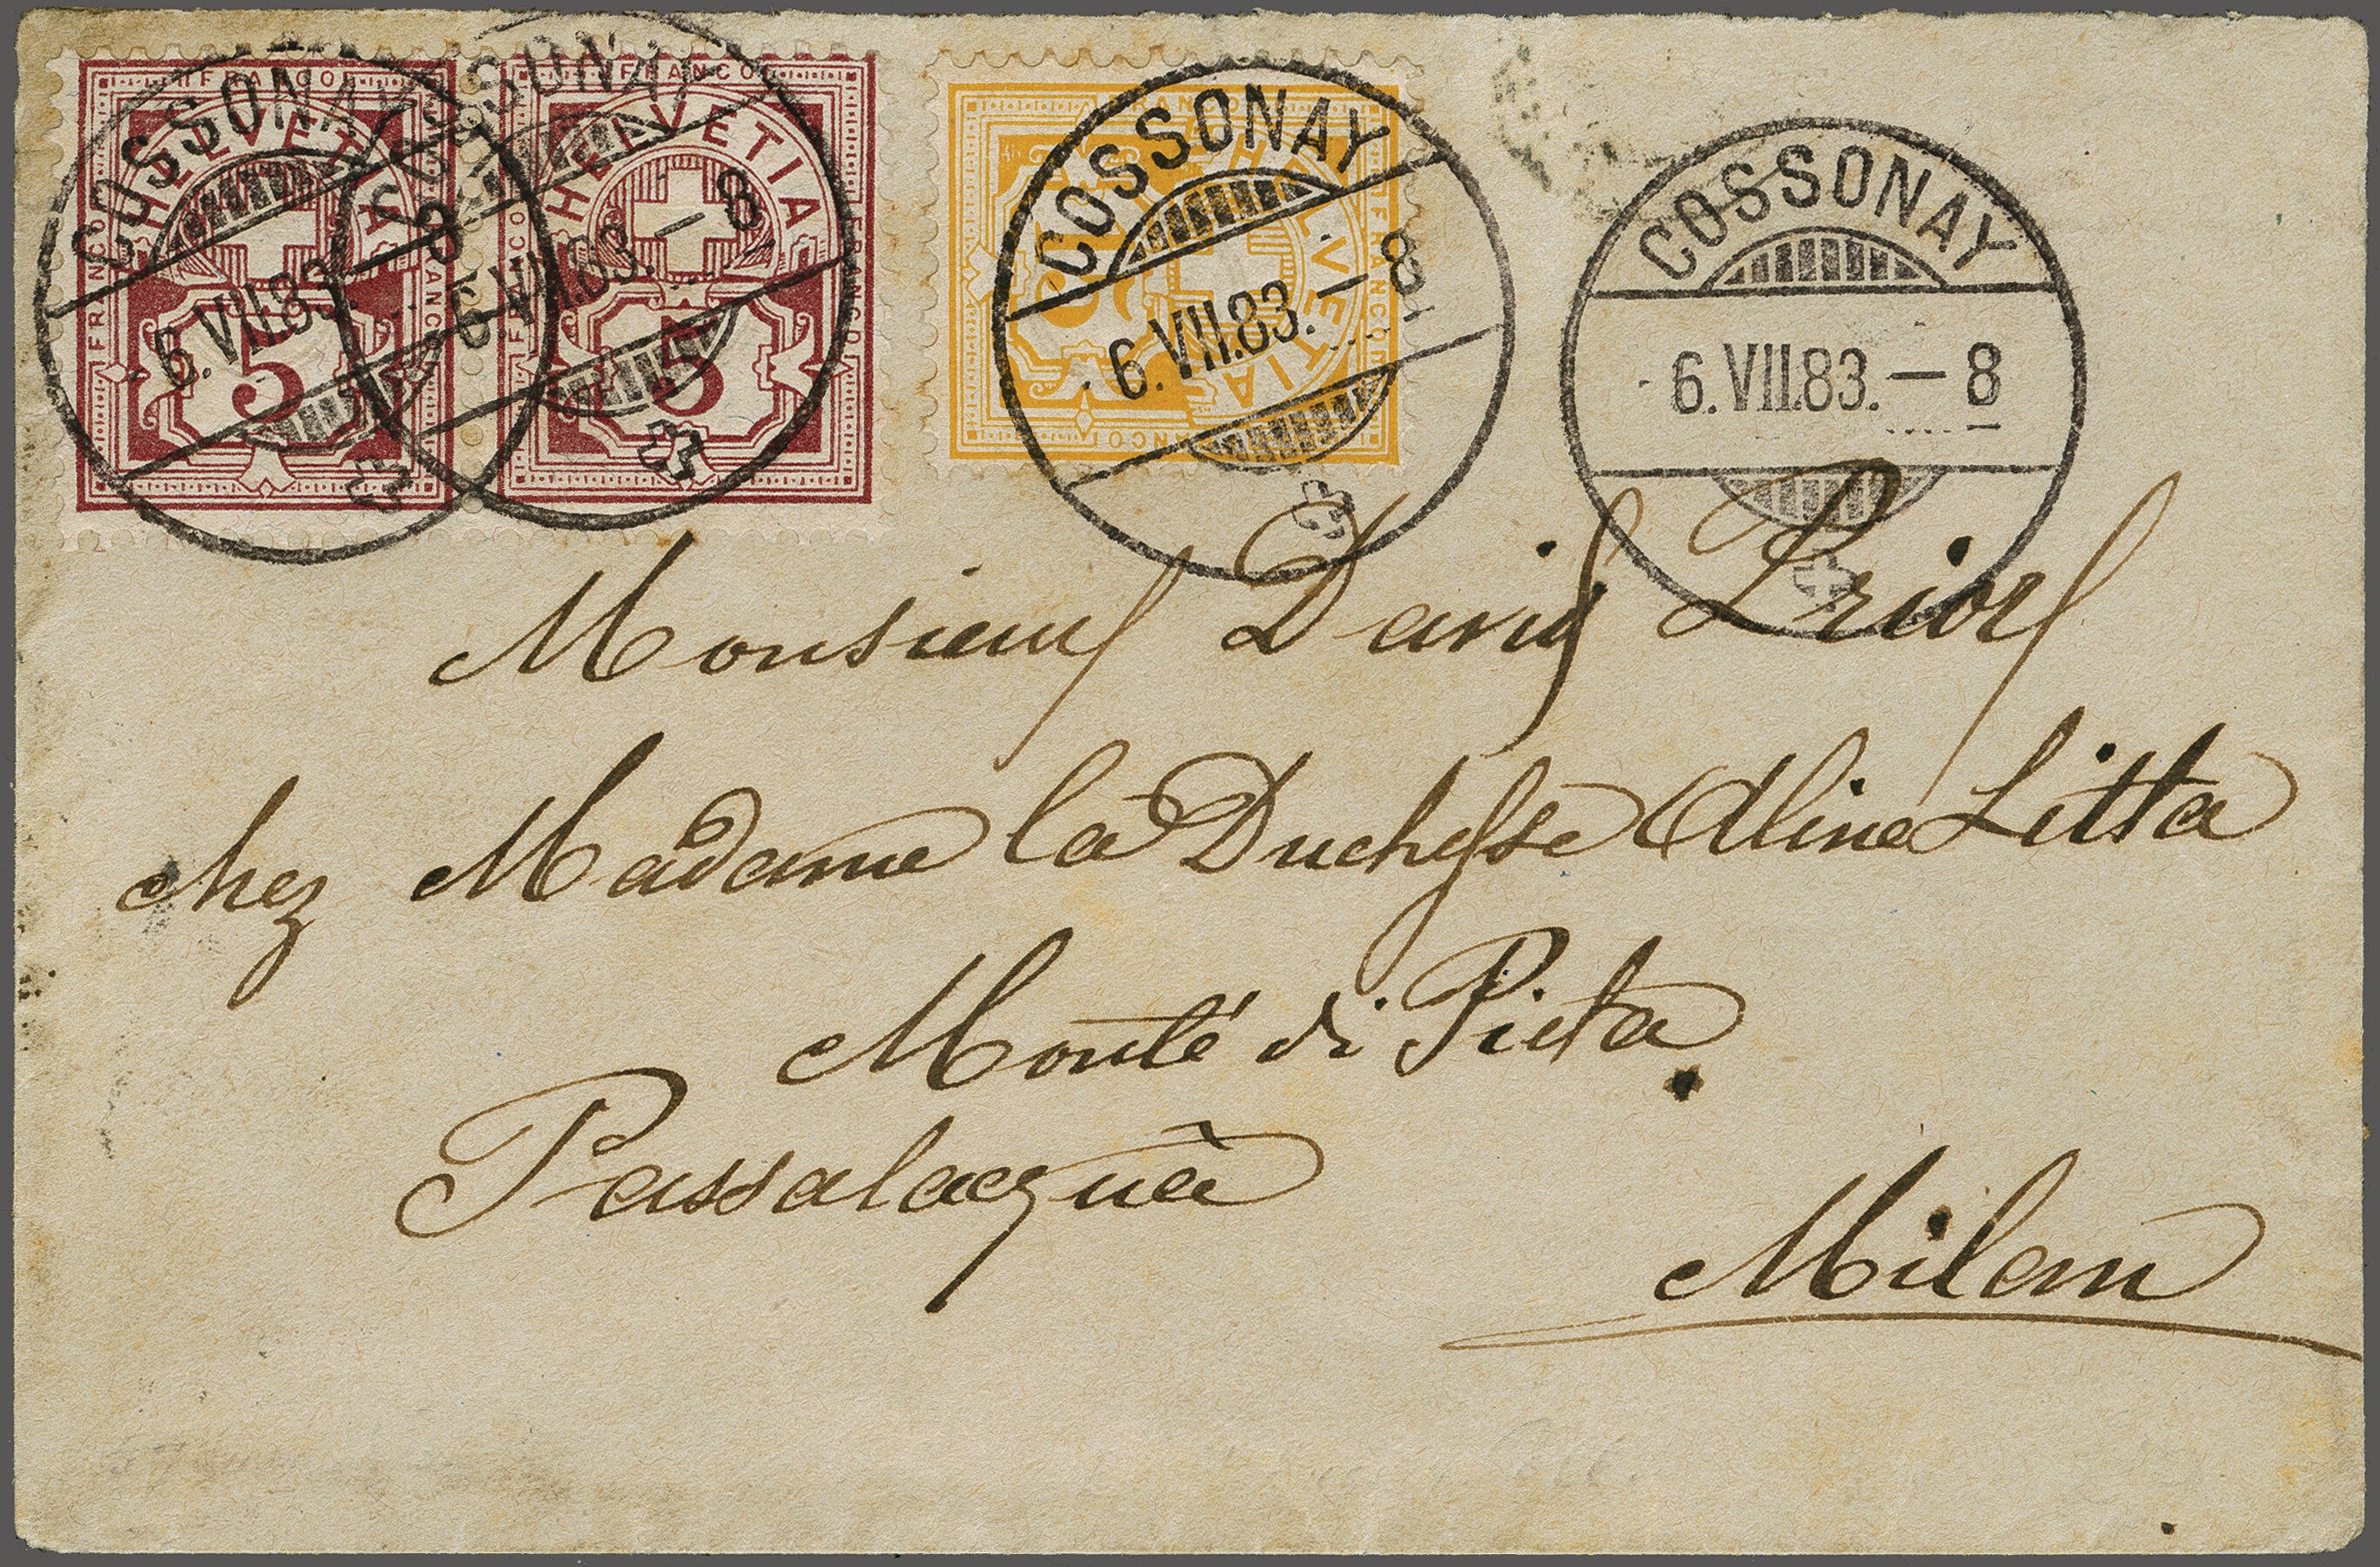 FRANCO
HELVETIA
FRANCO
FRANCO
5
FRANCO
HELVETIA
FRANCO
FRANCO
5
FRANCO
HELVETIA
FRANCO
FRANCO
COSSONAY
6.VII.83.–8
COSSONAY
6.VII.83.–8
COSSONAY
6.VII.83.–8
COSSONAY
6.VII.83.–8
Monsieur David Prior
chez Madame la Duchesse Aline Litta
Monté di Pieta
Passalacquà
Milan